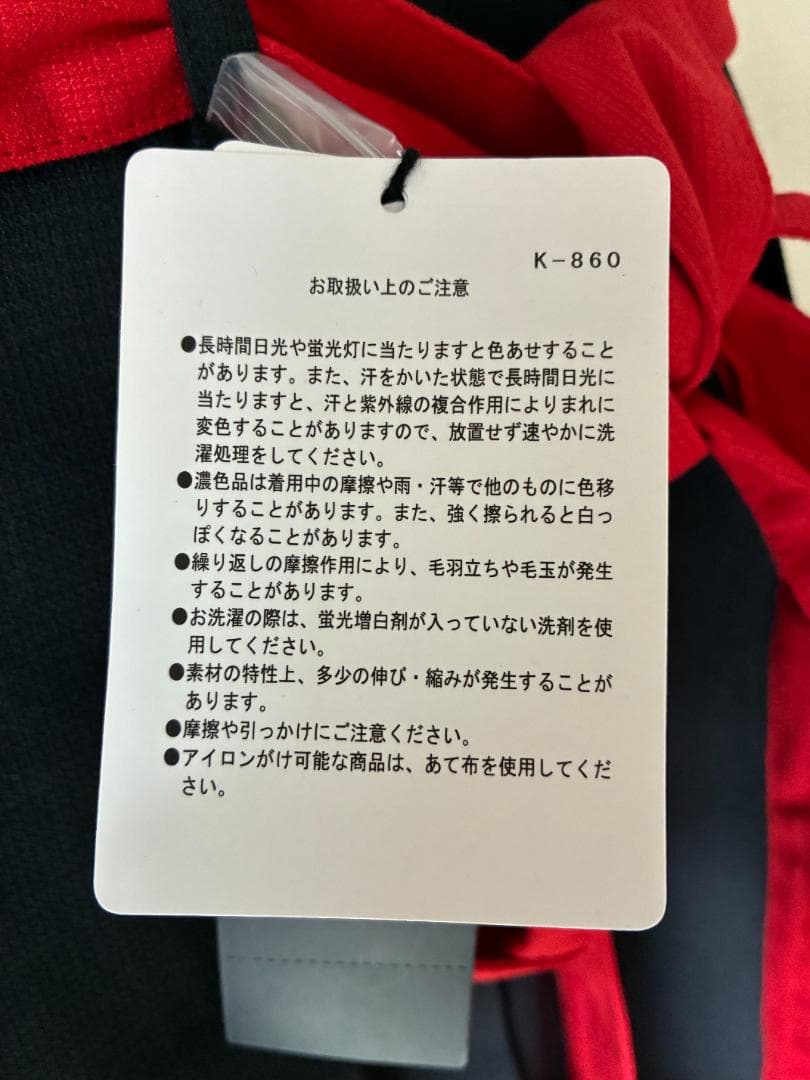 K-860
お取扱い上のご注意
●長時間日光や蛍光灯に当たりますと色あせすること
があります。また、汗をかいた状態で長時間日光に
当たりますと、汗と紫外線の複合作用によりまれに
変色することがありますので、放置せず速やかに洗
濯処理をしてください。
●濃色品は着用中の摩擦や雨・汗等で他のものに色移
りすることがあります。また、強く擦られると白っ
ぽくなることがあります。
●繰り返しの摩擦作用により、毛羽立ちや毛玉が発生
することがあります。
●お洗濯の際は、蛍光増白剤が入っていない洗剤を使
用してください。
●素材の特性上、多少の伸び・縮みが発生することが
あります。
●摩擦や引っかけにご注意ください。
●アイロンがけ可能な商品は、あて布を使用してくだ
さい。